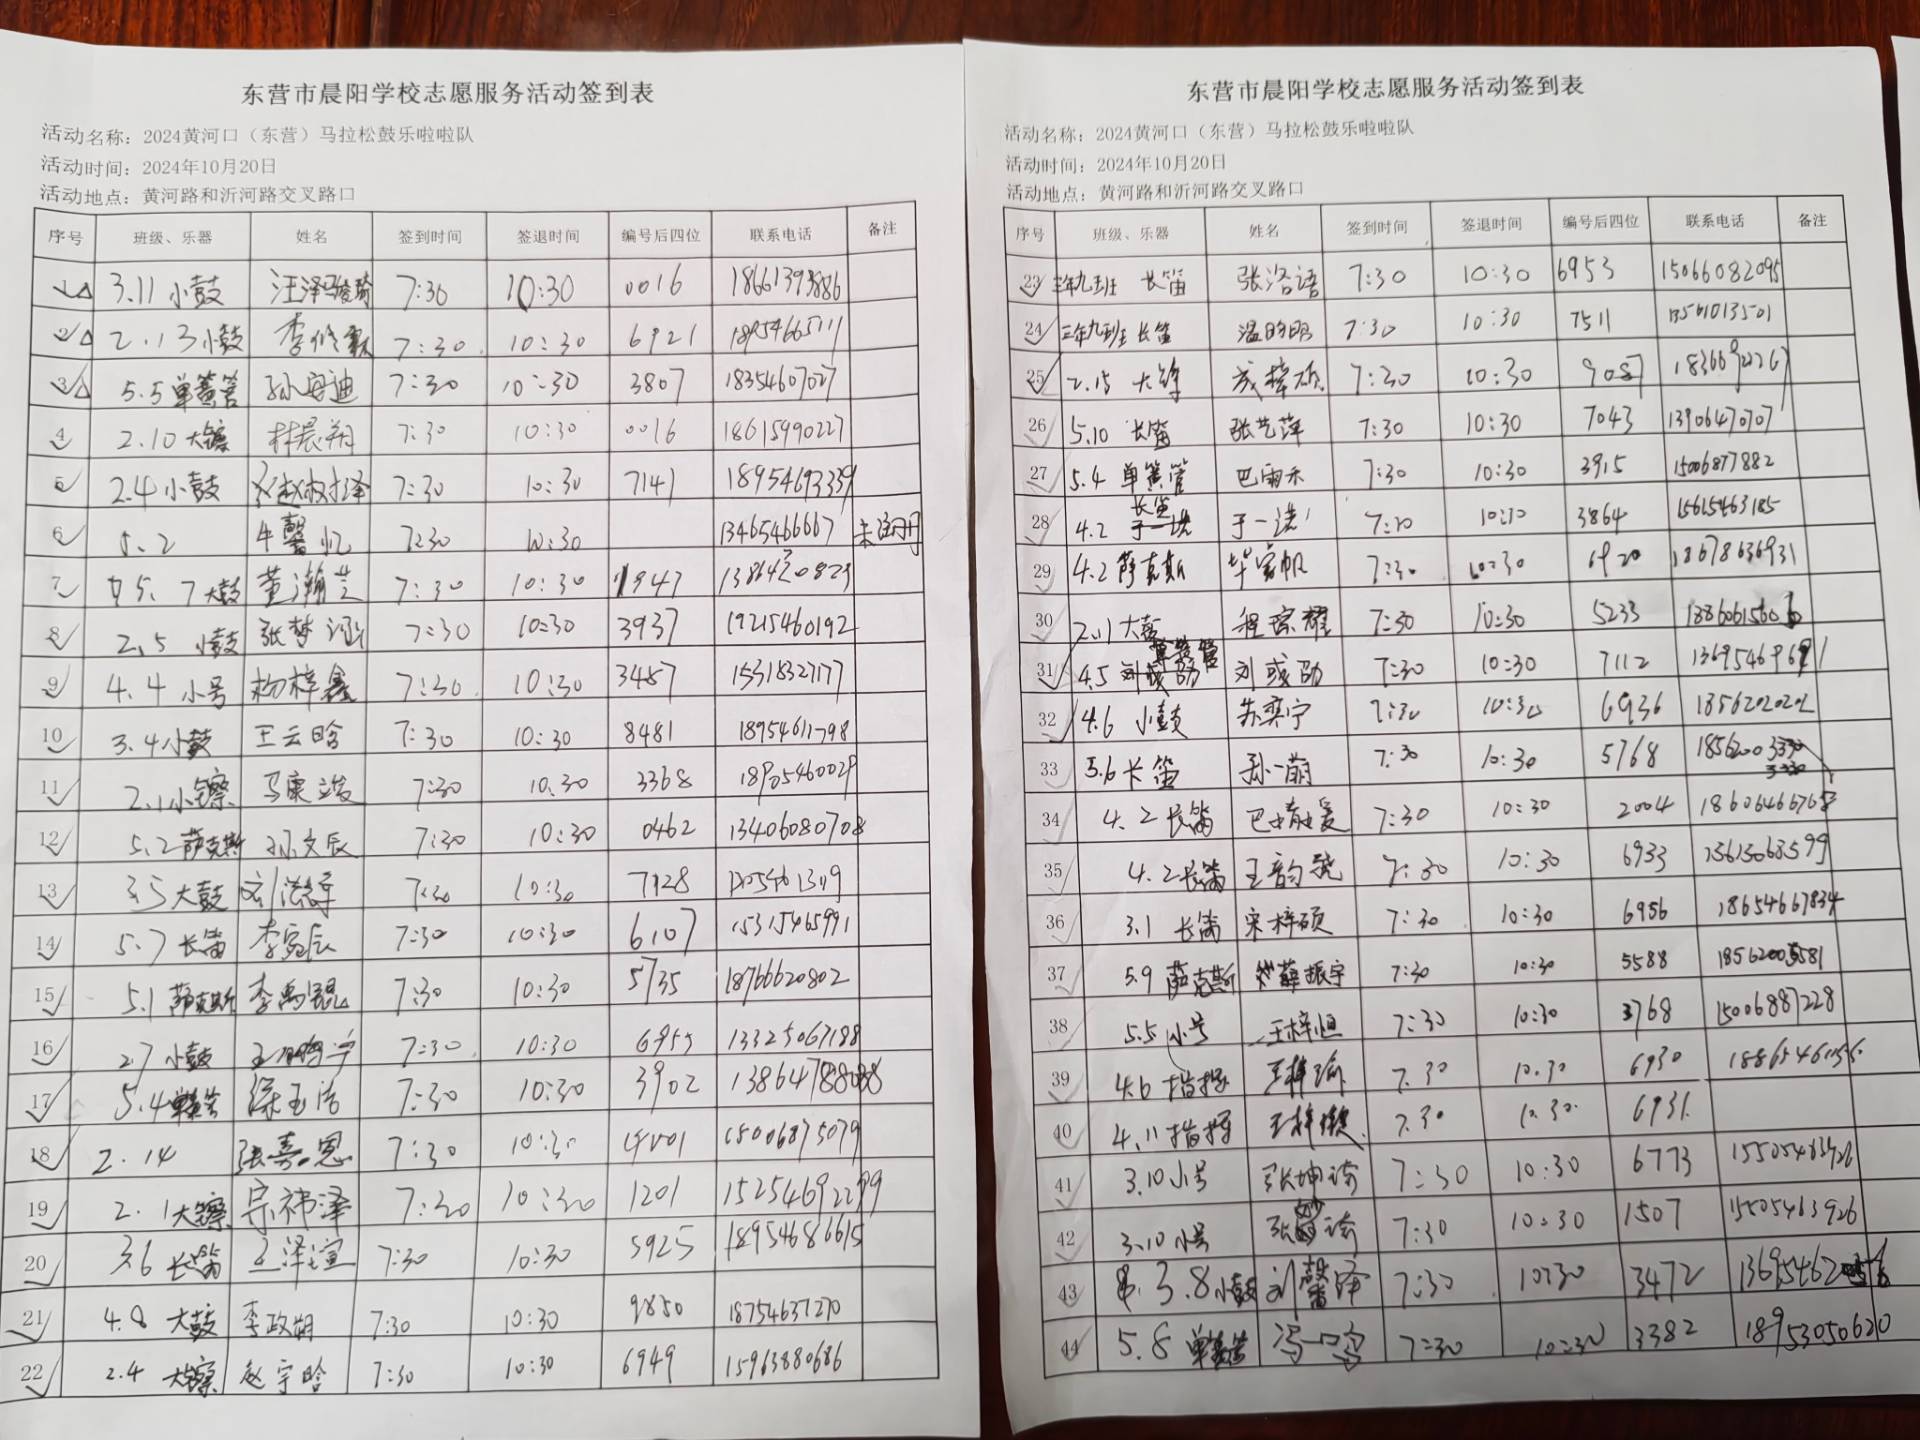 东营市晨阳学校志愿服务活动签到表
活动名称：2024黄河口（东营）马拉松鼓乐啦啦队
活动时间：2024年10月20日
活动地点：黄河路和沂河路交叉路口
序号 班级、乐器 姓名 签到时间 签退时间 编号后四位 联系电话 备注
1 3.11 小鼓 7:30 10:30 0016
2 2.13 小鼓 7:30 10:30 6921
3 5.5 单簧管 7:30 10:30 3807 18354607027
4 2.10 大镲 林晨翔 7:30 10:30 0016 18615990227
5 2.4 小鼓 7:30 10:30 7147 18954693339
6 5.2 牛馨忆 7:30 10:30 13465466667
7 5.7 大鼓 7:30 10:30 1947
8 2.5 小鼓 张梦涵 7:30 10:30 3937 19215460192
9 4.4 小号 杨梓鑫 7:30 10:30 3487 15318327177
10 3.4 小鼓 王云晗 7:30 10:30 8481 18954611798
11 2.1 小镲 7:30 10:30 3368 18905460029
12 5.2 萨克斯 孙文辰 7:30 10:30 0462 13406080708
13 3.5 大鼓 7:30 10:30 7128
14 5.7 长笛 7:30 10:30 6107 15315465991
15 5.1 萨克斯 李禹锟 7:30 10:30 5735 18766620802
16 2.7 小鼓 7:30 10:30 6955 13325067188
17 5.4 单簧管 7:30 10:30 3902
18 2.14 张熹恩 7:30 10:30 15006875079
19 2.1 大镲 宗祎泽 7:30 10:30 1201 15254692299
20 3.6 长笛 王泽宣 7:30 10:30 5925 18954686615
21 4.8 大鼓 李政朔 7:30 10:30 9850 18754637270
22 2.4 大镲 赵宇晗 7:30 10:30 6949 15963880686
东营市晨阳学校志愿服务活动签到表
活动名称：2024黄河口（东营）马拉松鼓乐啦啦队
活动时间：2024年10月20日
活动地点：黄河路和沂河路交叉路口
序号 班级、乐器 姓名 签到时间 签退时间 编号后四位 联系电话 备注
23 三年九班 长笛 张洛语 7:30 10:30 6953 15066082095
24 三年九班 长笛 7:30 10:30 7511
25 2.15 7:30 10:30 9087
26 5.10 长笛 张艺萍 7:30 10:30 7043 13906470707
27 5.4 单簧管 巴雨禾 7:30 10:30 3915 15006877882
28 4.2 长笛 7:10 10:10 3864 15615463185
29 4.2 萨克斯 7:30 10:30 6920 18678636931
30 2.11 大鼓 程琮耀 7:30 10:30 5233
31 4.5 单簧管 刘彧劭 7:30 10:30 7112
32 4.6 小鼓 苏奕宁 7:30 10:30 6936
33 5.6 长笛 孙一萌 7:30 10:30 5768
34 4.2 长笛 7:30 10:30 2004 18606466768
35 4.2 长笛 7:30 10:30 6933 15615068599
36 3.1 长笛 宋梓硕 7:30 10:30 6956 18654667834
37 5.9 萨克斯 薛振宇 7:30 10:30 5588 18562005581
38 5.5 小号 王梓恒 7:30 10:30 3768 15006887228
39 4.6 指挥 7:30 10:30 6930
40 4.11 指挥 7:30 10:30 6931
41 3.10 小号 张坤琦 7:30 10:30 6773
42 3.10 小号 7:30 10:30 1507 15505463926
43 3.8 小鼓 刘馨泽 7:30 10:30 3472
44 5.8 单簧管 冯一鸣 7:30 10:30 3382 18953050620